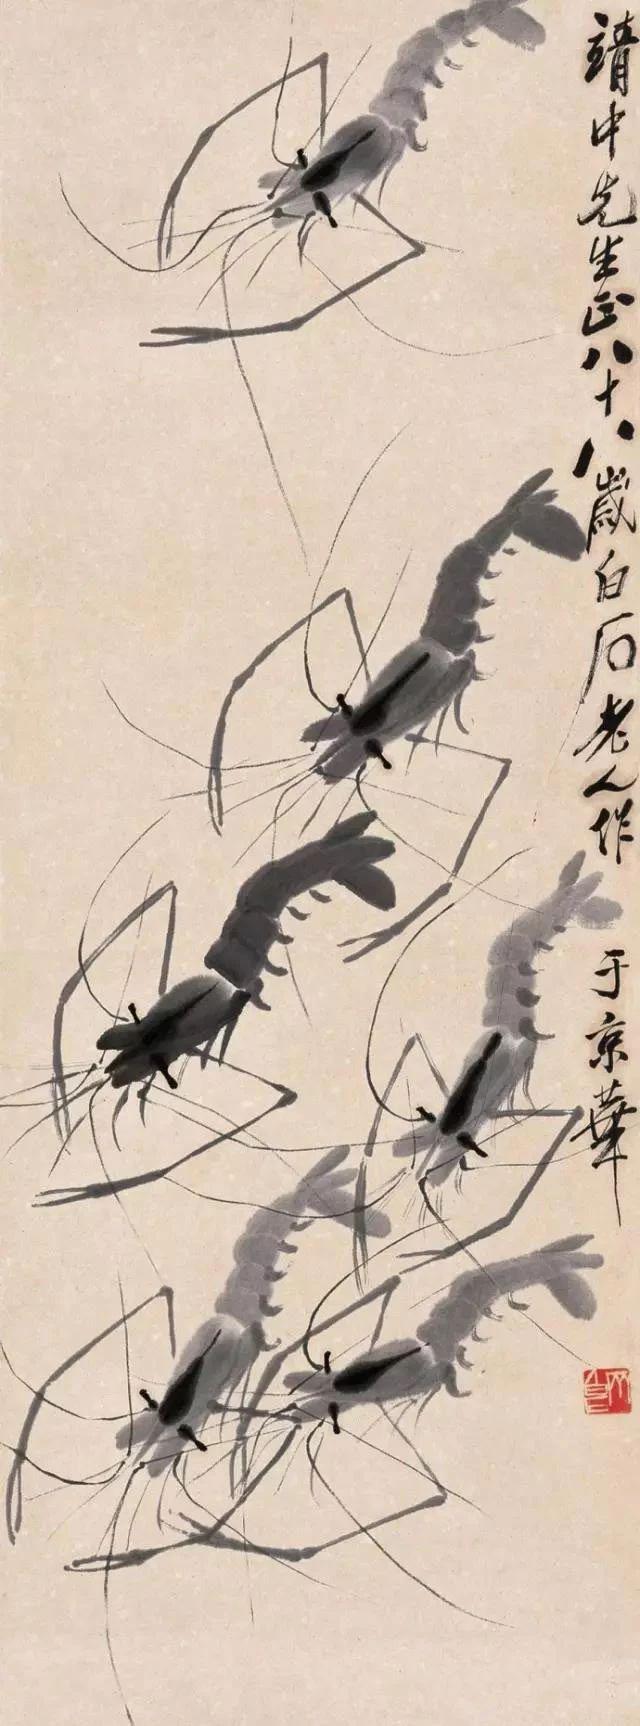 靖中先生正八十八歲白石老人作于京華